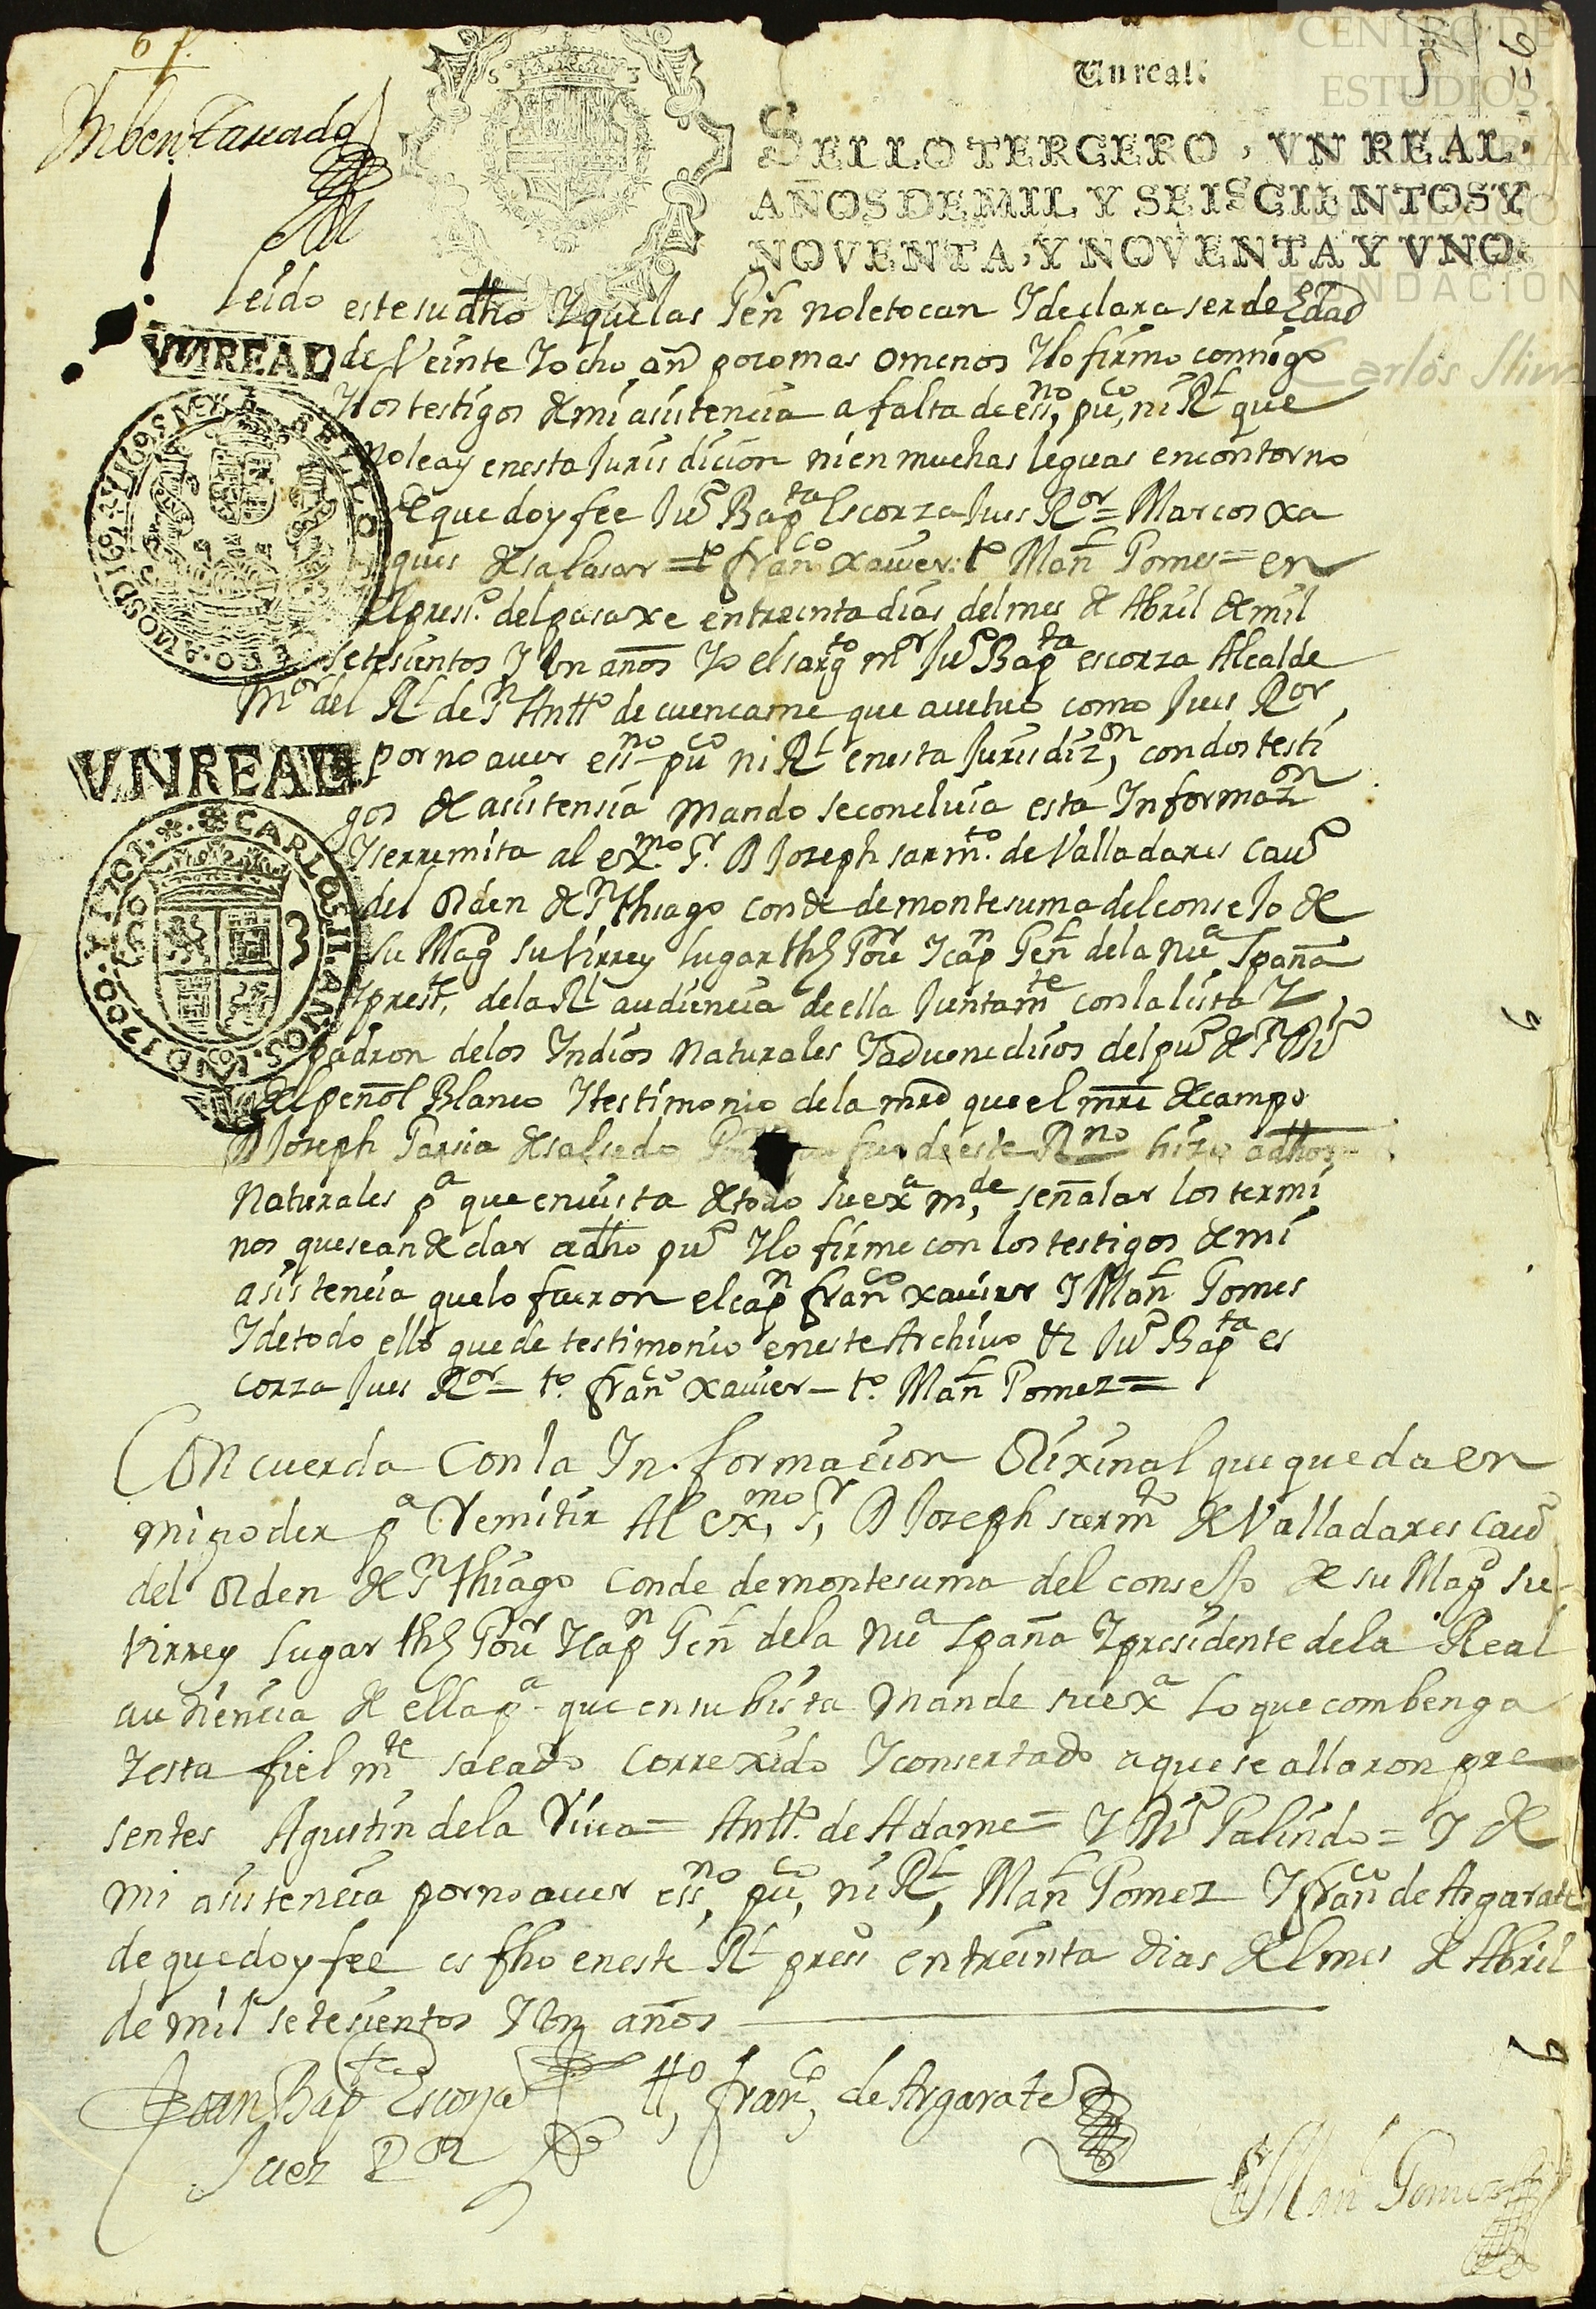 67.
Inbentariado
Un real.
SELLO TERCERO, VN REAL,
AÑOS DE MIL Y SEISCIENTOS Y
NOVENTA, Y NOVENTA Y VNO.
CENTRO DE
ESTUDIOS
FUNDACION
Carlos Slim
leido este su dho Y que las Gen̄ no le tocan Y declara ser de Edad
VNREAL
de Veinte Y ocho an̄ poco mas o menos Y lo firmo conmigo
Y los testigos de mi asistencia a falta de essno, puco, ni Rl que
no le ay en esta Jurisdicion ni en muchas leguas en contorno
de que doy fee Jun Bapta Escorza Jues Ror = Marcos xa
ques de salasar = to franco xauier: to Manl Gomes = en
el presio. del pasaxe en treinta dias del mes de Abril de mil
setesientos Y Un años Yo el sargto mr Jun Bapta escorza Alcalde
Mor del Rl de Sn Antto de cuencame que actuo como Jues Ror
VNREAL
CARLOS II. AÑOS
por no auer essno puco ni Rl en esta Jurisdizon, con dos testi
gos de asistensia mando se concluia esta Informazon
Y se rremita al exmo. Sr. D Joseph sarmto. de Valladares Cauo
del Orden de Sn thiago conde de montesuma del consejo de
su Magd su Virrey lugar thē Gour Y capn Genl de la Nua Spaña
Y prest, de la Rl audiencia de ella Juntamte con la lista Y
padron de los Yndios Naturales Y aduenedisos del puo de Sn Juo
del peñol Blanco Y testimonio de la mrd que el mre de campo
D Joseph Garsia de salsedo que fue de este Rno hizo a dhos
Naturales pa que en vista de todo su exa mde, señalar los termi
nos que se an de dar a dho puo Y lo firme con los testigos de mi
asistencia que lo fueron el capn franco xauier Y Manl Gomes
Y de todo ello quede testimonio en este Archivo & Jun Bapta es
corza Jues Ror = to. franco xauier = to. Manl Gomez =
Concuerda con la Informacion Orixinal que queda en
mi poder pa Remitir Al exmo, Sr, D Joseph sarmto de Valladares cauo
del Orden de Sn thiago conde de montesuma del consejo de su Magd su
virrey lugar thē Gour Y capn Genl de la Nua Spaña Y presidente de la Real
audiencia de ella pa que en su bista mande su exa lo que combenga
Y esta fielmte sacado correxido Y consertado a que se allaron pre
sentes Agustin de la Riua = Antto. de Adame = Y Juo Galindo = Y de
mi asistencia por no auer essno, puco, ni Rl, Manl Gomez Y franco de Argarate
de que doy fee es fho en este Rl presio en treinta dias del mes de Abril
de mil setesientos Y Un años
Joan Bapta Escorza
Juez Ror
tto, franco, de Argarate
to Manl Gomez